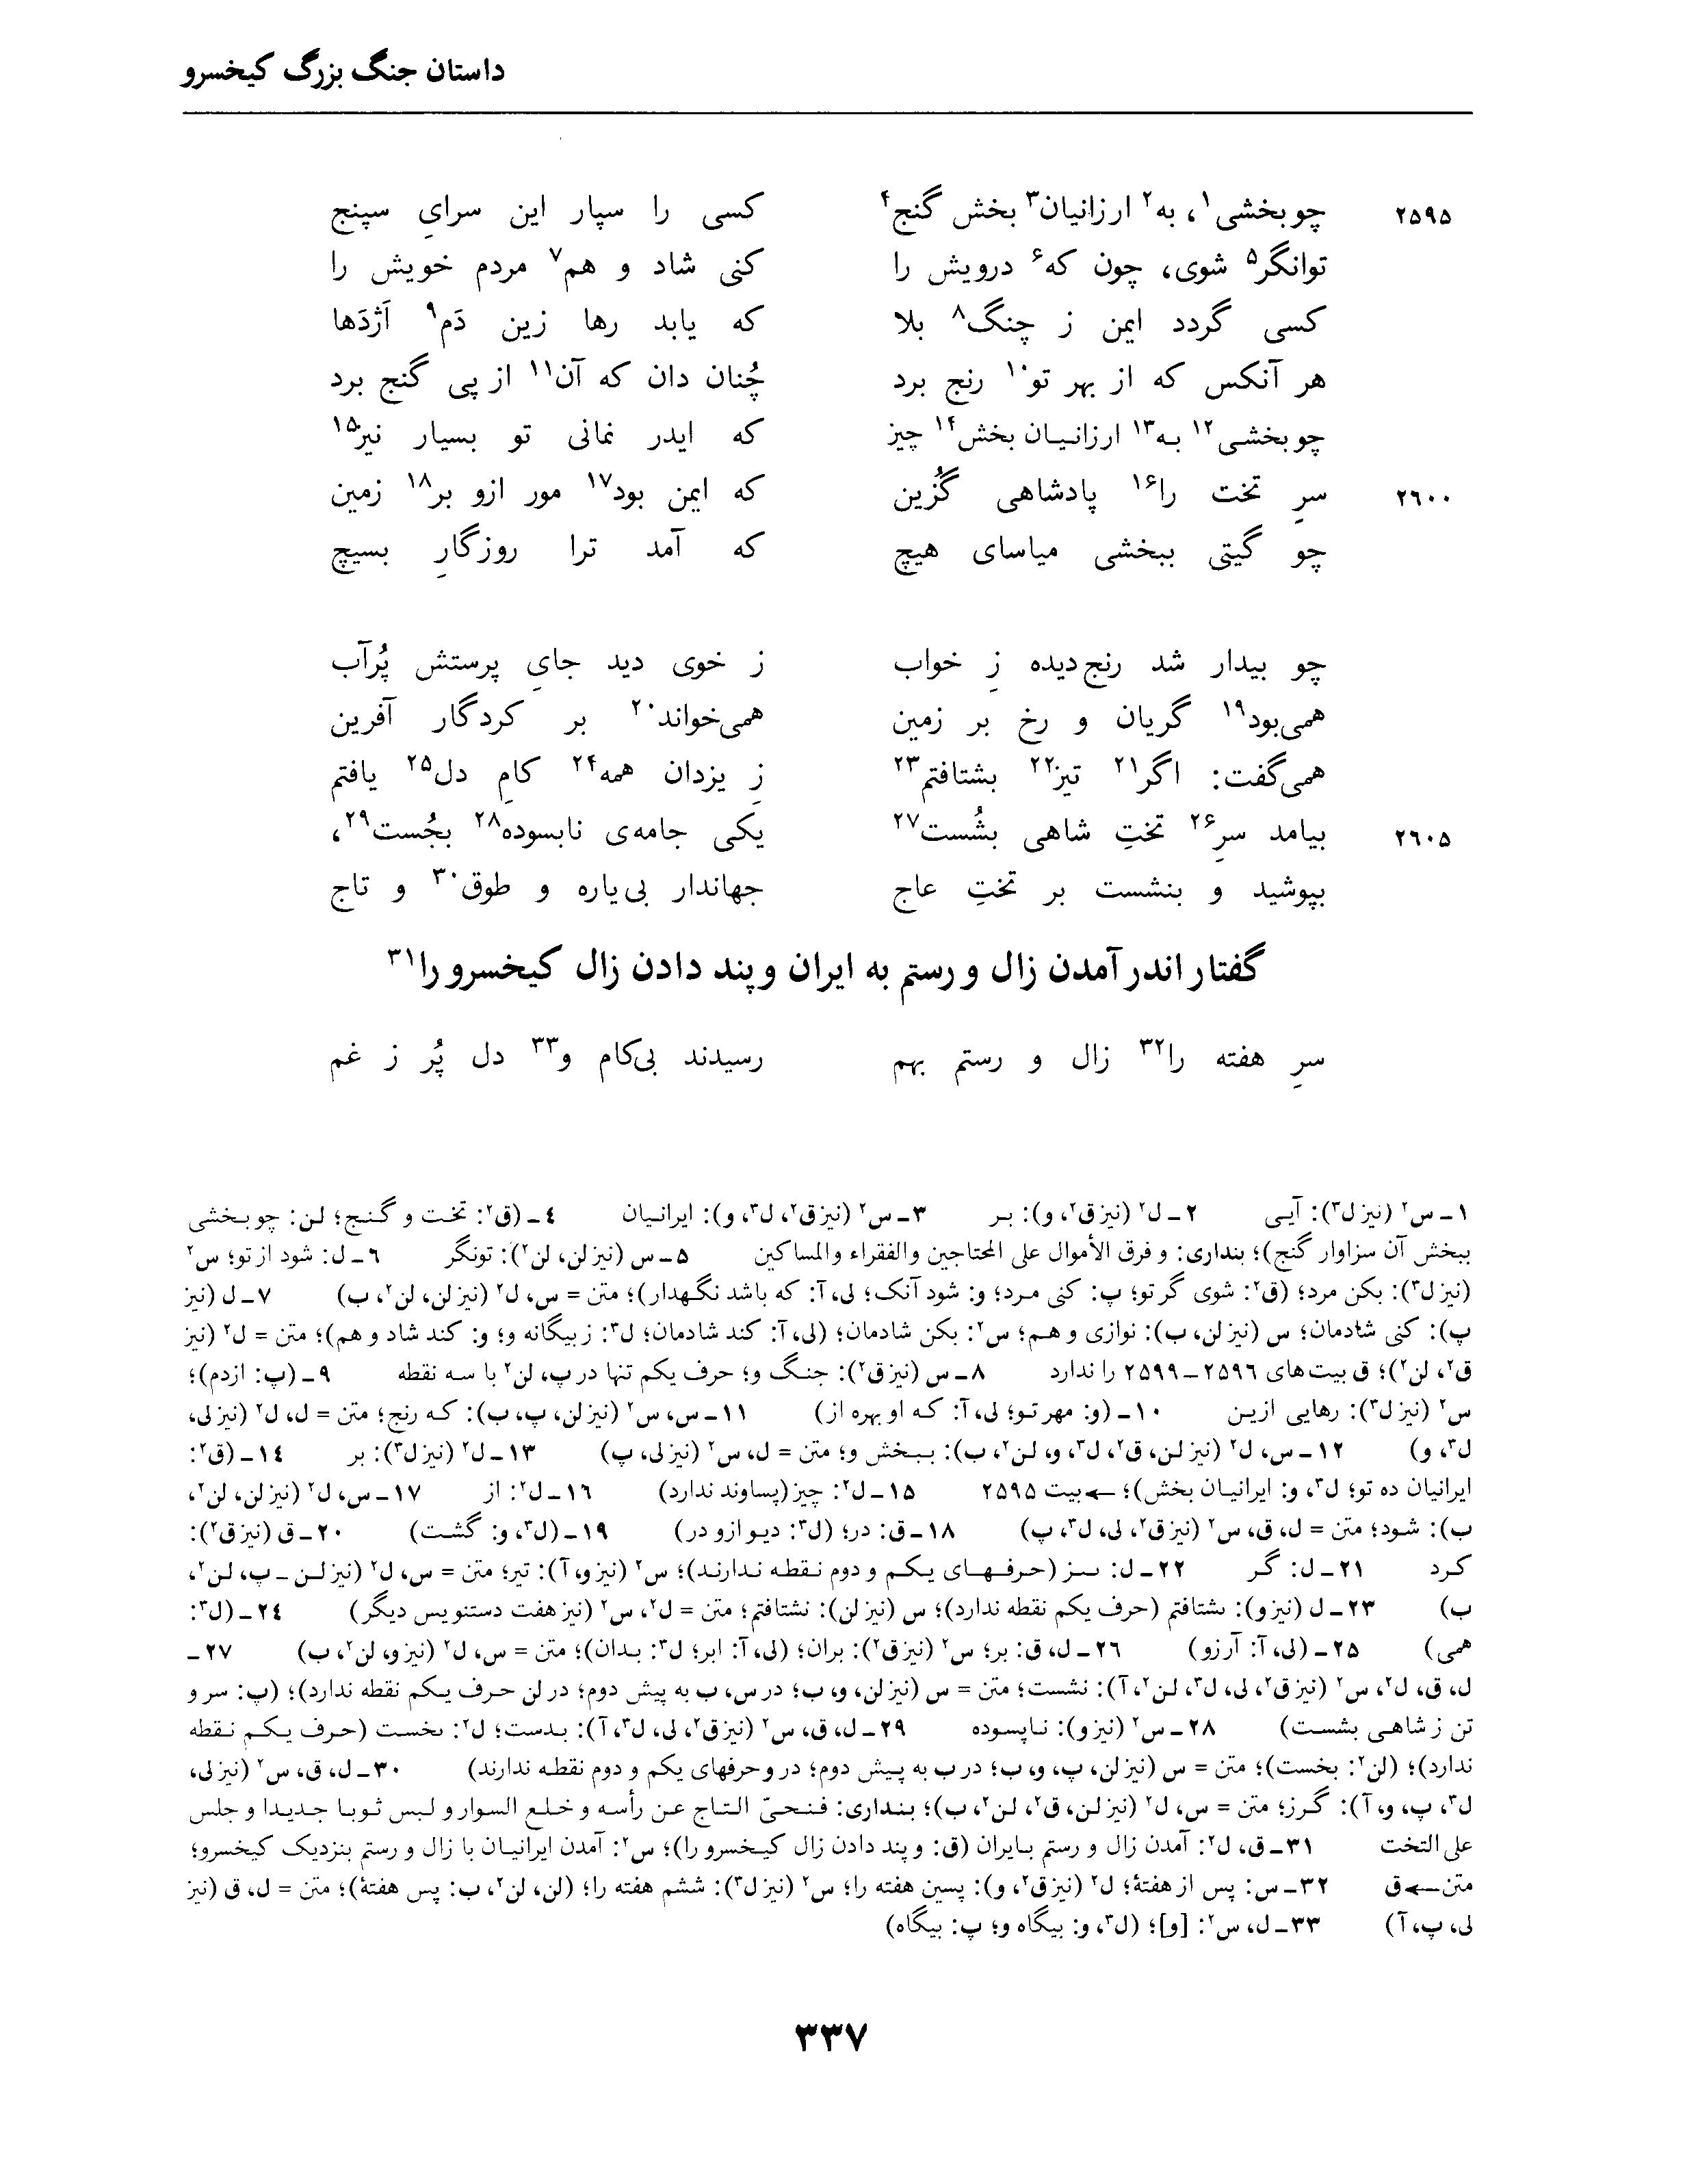 داستان جنگ بزرگ کیخسرو
۲۵۹۵ چو بخشی۱، به۲ ارزانیان۳ بخش گنج۴ کسی را سپار این سرایِ سپنج
توانگر۵ شوی، چون که۶ درویش را کنی شاد و هم۷ مردم خویش را
کسی گردد ایمن ز چنگ۸ بلا که یابد رها زین دَم۹ اَژدَها
هر آنکس که از بهر تو۱۰ رنج برد چُنان دان که آن۱۱ از پی گنج برد
چو بخشی۱۲ به۱۳ ارزانیان بخش۱۴ چیز که ایدر نمانی تو بسیار نیز۱۵
۲۶۰۰ سرِ تخت را۱۶ پادشاهی گُزین که ایمن بود۱۷ مور ازو بر۱۸ زمین
چو گیتی ببخشی میاسای هیچ که آمد ترا روزگارِ بسیچ
چو بیدار شد رنج‌دیده زِ خواب ز خوی دید جایِ پرستش پُرآب
همی‌بود۱۹ گریان و رخ بر زمین همی‌خواند۲۰ بر کردگار آفرین
همی‌گفت: اگر۲۱ تیز۲۲ بشتافتم۲۳ زِ یزدان همه۲۴ کامِ دل۲۵ یافتم
۲۶۰۵ بیامد سرِ۲۶ تختِ شاهی بشُست۲۷ یکی جامه‌ی نابسوده۲۸ بجُست۲۹،
بپوشید و بنشست بر تختِ عاج جهاندار بی‌یاره و طوق۳۰ و تاج
گفتار اندر آمدن زال و رستم به ایران و پند دادن زال کیخسرو را۳۱
سرِ هفته را۳۲ زال و رستم بهم رسیدند بی‌کام و۳۳ دل پُر ز غم
۱ـ س۲ (نیز ل۳): آیی ۲ـ ل۲ (نیز ق۲، و): بر ۳ـ س۲ (نیز ق۲، ل۳، و): ایرانیان ۴ـ (ق۲: تخت و گنج؛ لن: چو بخشی
ببخش آن سزاوار گنج)؛ بنداری: و فرق الأموال علی المحتاجین والفقراء والمساکین ۵ـ س (نیز لن، لن۲): تونگر ۶ـ ل: شود از تو؛ س۲
(نیز ل۳): بکن مرد؛ (ق۲: شوی گر تو؛ پ: کنی مرد؛ و: شود آنک؛ لی، آ: که باشد نگهدار)؛ متن = س، ل۲ (نیز لن، لن۲، ب) ۷ـ ل (نیز
پ): کنی شادمان؛ س (نیز لن، ب): نوازی و هم؛ س۲: بکن شادمان؛ (لی، آ: کند شادمان؛ ل۳: ز بیگانه و؛ و: کند شاد و هم)؛ متن = ل۲ (نیز
ق۲، لن۲)؛ ق بیت‌های ۲۵۹۶ـ۲۵۹۹ را ندارد ۸ـ س (نیز ق۲): جنگ و؛ حرف یکم تنها در پ، لن۲ با سه نقطه ۹ـ (پ: ازدم)؛
س۲ (نیز ل۳): رهایی ازین ۱۰ـ (و: مهر تو؛ لی، آ: که او بهره از) ۱۱ـ س، س۲ (نیز لن، پ، ب): که رنج؛ متن = ل، ل۲ (نیز لی،
ل۳، و) ۱۲ـ س، ل۲ (نیز لن، ق۲، ل۳، و، لن۲، ب): ببخش و؛ متن = ل، س۲ (نیز لی، پ) ۱۳ـ ل۲ (نیز ل۳): بر ۱۴ـ (ق۲:
ایرانیان ده تو؛ ل۳، و: ایرانیان بخش)؛ ←بیت ۲۵۹۵ ۱۵ـ ل۲: چیز (پساوند ندارد) ۱۶ـ ل۲: از ۱۷ـ س، ل۲ (نیز لن، لن۲،
ب): شود؛ متن = ل، ق، س۲ (نیز ق۲، لی، ل۳، پ) ۱۸ـ ق: در؛ (ل۳: دیو ازو در) ۱۹ـ (ل۳، و: گشت) ۲۰ـ ق (نیز ق۲):
کرد ۲۱ـ ل: گر ۲۲ـ ل: ٮٮز (حرفهای یکم و دوم نقطه ندارند)؛ س۲ (نیز و، آ): تیر؛ متن = س، ل۲ (نیز لن ـ پ، لن۲،
ب) ۲۳ـ ل (نیز و): ٮشتافتم (حرف یکم نقطه ندارد)؛ س (نیز لن): نشتافتم؛ متن = ل۲، س۲ (نیز هفت دستنویس دیگر) ۲۴ـ (ل۳:
همی) ۲۵ـ (لی، آ: آرزو) ۲۶ـ ل، ق: بر؛ س۲ (نیز ق۲): بران؛ (لی، آ: ابر؛ ل۳: بدان)؛ متن = س، ل۲ (نیز و، لن۲، ب) ۲۷ـ
ل، ق، ل۲، س۲ (نیز ق۲، لی، ل۳، لن۲، آ): نشست؛ متن = س (نیز لن، و، ب؛ در س، ب به پیش دوم؛ در لن حرف یکم نقطه ندارد)؛ (پ: سر و
تن ز شاهی بشست) ۲۸ـ س۲ (نیز و): ناپسوده ۲۹ـ ل، ق، س۲ (نیز ق۲، لی، ل۳، آ): بدست؛ ل۲: ٮخست (حرف یکم نقطه
ندارد)؛ (لن۲: بخست)؛ متن = س (نیز لن، پ، و، ب؛ در ب به پیش دوم؛ در و حرفهای یکم و دوم نقطه ندارند) ۳۰ـ ل، ق، س۲ (نیز لی،
ل۳، پ، و، آ): گرز؛ متن = س، ل۲ (نیز لن، ق۲، لن۲، ب)؛ بنداری: فنحیّ التاج عن رأسه و خلع السوار و لبس ثوبا جدیدا و جلس
علی التخت ۳۱ـ ق، ل۲: آمدن زال و رستم بایران (ق: و پند دادن زال کیخسرو را)؛ س۲: آمدن ایرانیان با زال و رستم بنزدیک کیخسرو؛
متن←ق ۳۲ـ س: پس از هفتهٔ؛ ل۲ (نیز ق۲، و): پسین هفته را؛ س۲ (نیز ل۳): ششم هفته را؛ (لن، لن۲، ب: پس هفتهٔ)؛ متن = ل، ق (نیز
لی، پ، آ) ۳۳ـ ل، س۲: [و]؛ (ل۳، و: بیگاه و؛ پ: بیگاه)
۳۳۷